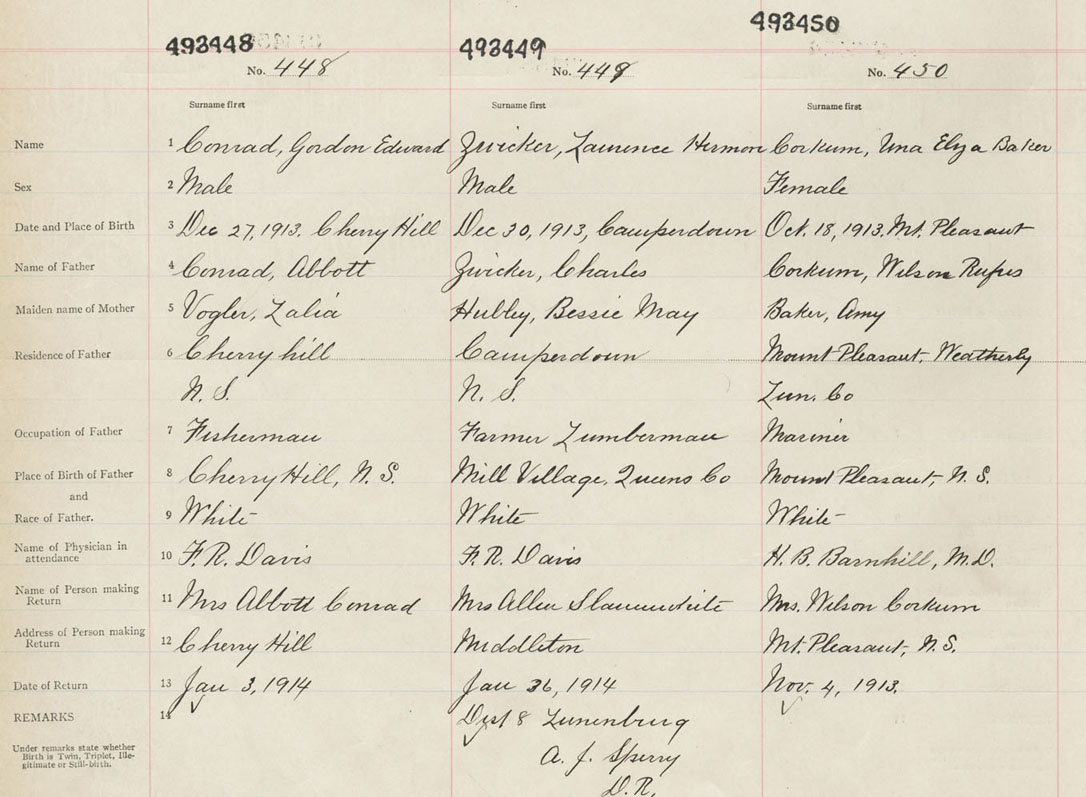 493448 493449 493450
No. 448 No. 449 No. 450
Surname first Surname first Surname first
Name 1 Conrad, Gordon Edward Zwicker, Laurence Hermon Corkum, Una Elya Baker
Sex 2 Male Male Female
Date and Place of Birth 3 Dec 27, 1913. Cherry Hill Dec 30, 1913, Camperdown Oct. 18, 1913. Mt. Pleasant
Name of Father 4 Conrad, Abbott Zwicker, Charles Corkum, Wilson Rufus
Maiden name of Mother 5 Vogler, Zalia Hubley, Bessie May Baker, Amy
Residence of Father 6 Cherry hill Camperdown Mount Pleasant, Weatherby
N. S. N. S. Lun. Co
Occupation of Father 7 Fisherman Farmer Lumberman Mariner
Place of Birth of Father 8 Cherry Hill, N. S. Mill Village, Queens Co Mount Pleasant, N. S.
and
Race of Father. 9 White White White
Name of Physician in
attendance 10 F. R. Davis F. R. Davis H. B. Barnhill, M.D.
Name of Person making
Return 11 Mrs Abbott Conrad Mrs Allen Slauenwhite Mrs. Wilson Corkum
Address of Person making
Return 12 Cherry Hill Middleton Mt. Pleasant, N. S.
Date of Return 13 Jan 3, 1914 Jan 26, 1914 Nov. 4, 1913.
REMARKS 14 Dist 8 Lunenburg
Under remarks state whether
Birth is Twin, Triplet, Ille-
gitimate or Still-birth.
A. J. Sperry
D. R.